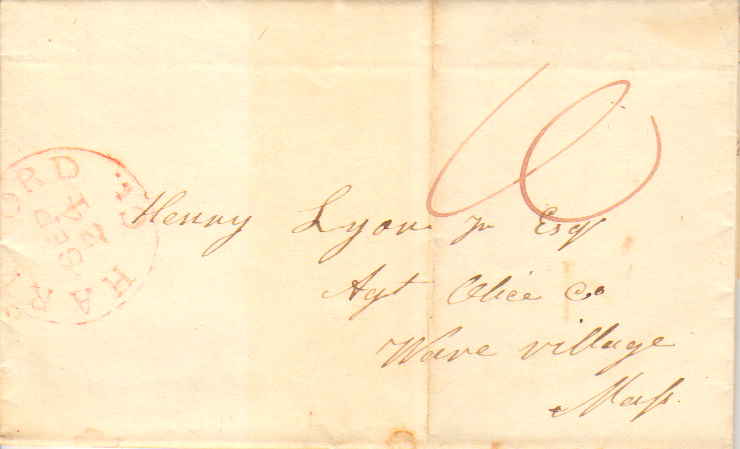 10
HARTFORD CT.
SEP
24
Henry Lyon Jr Esqr
Agt Olice Co
Ware village
Mass.